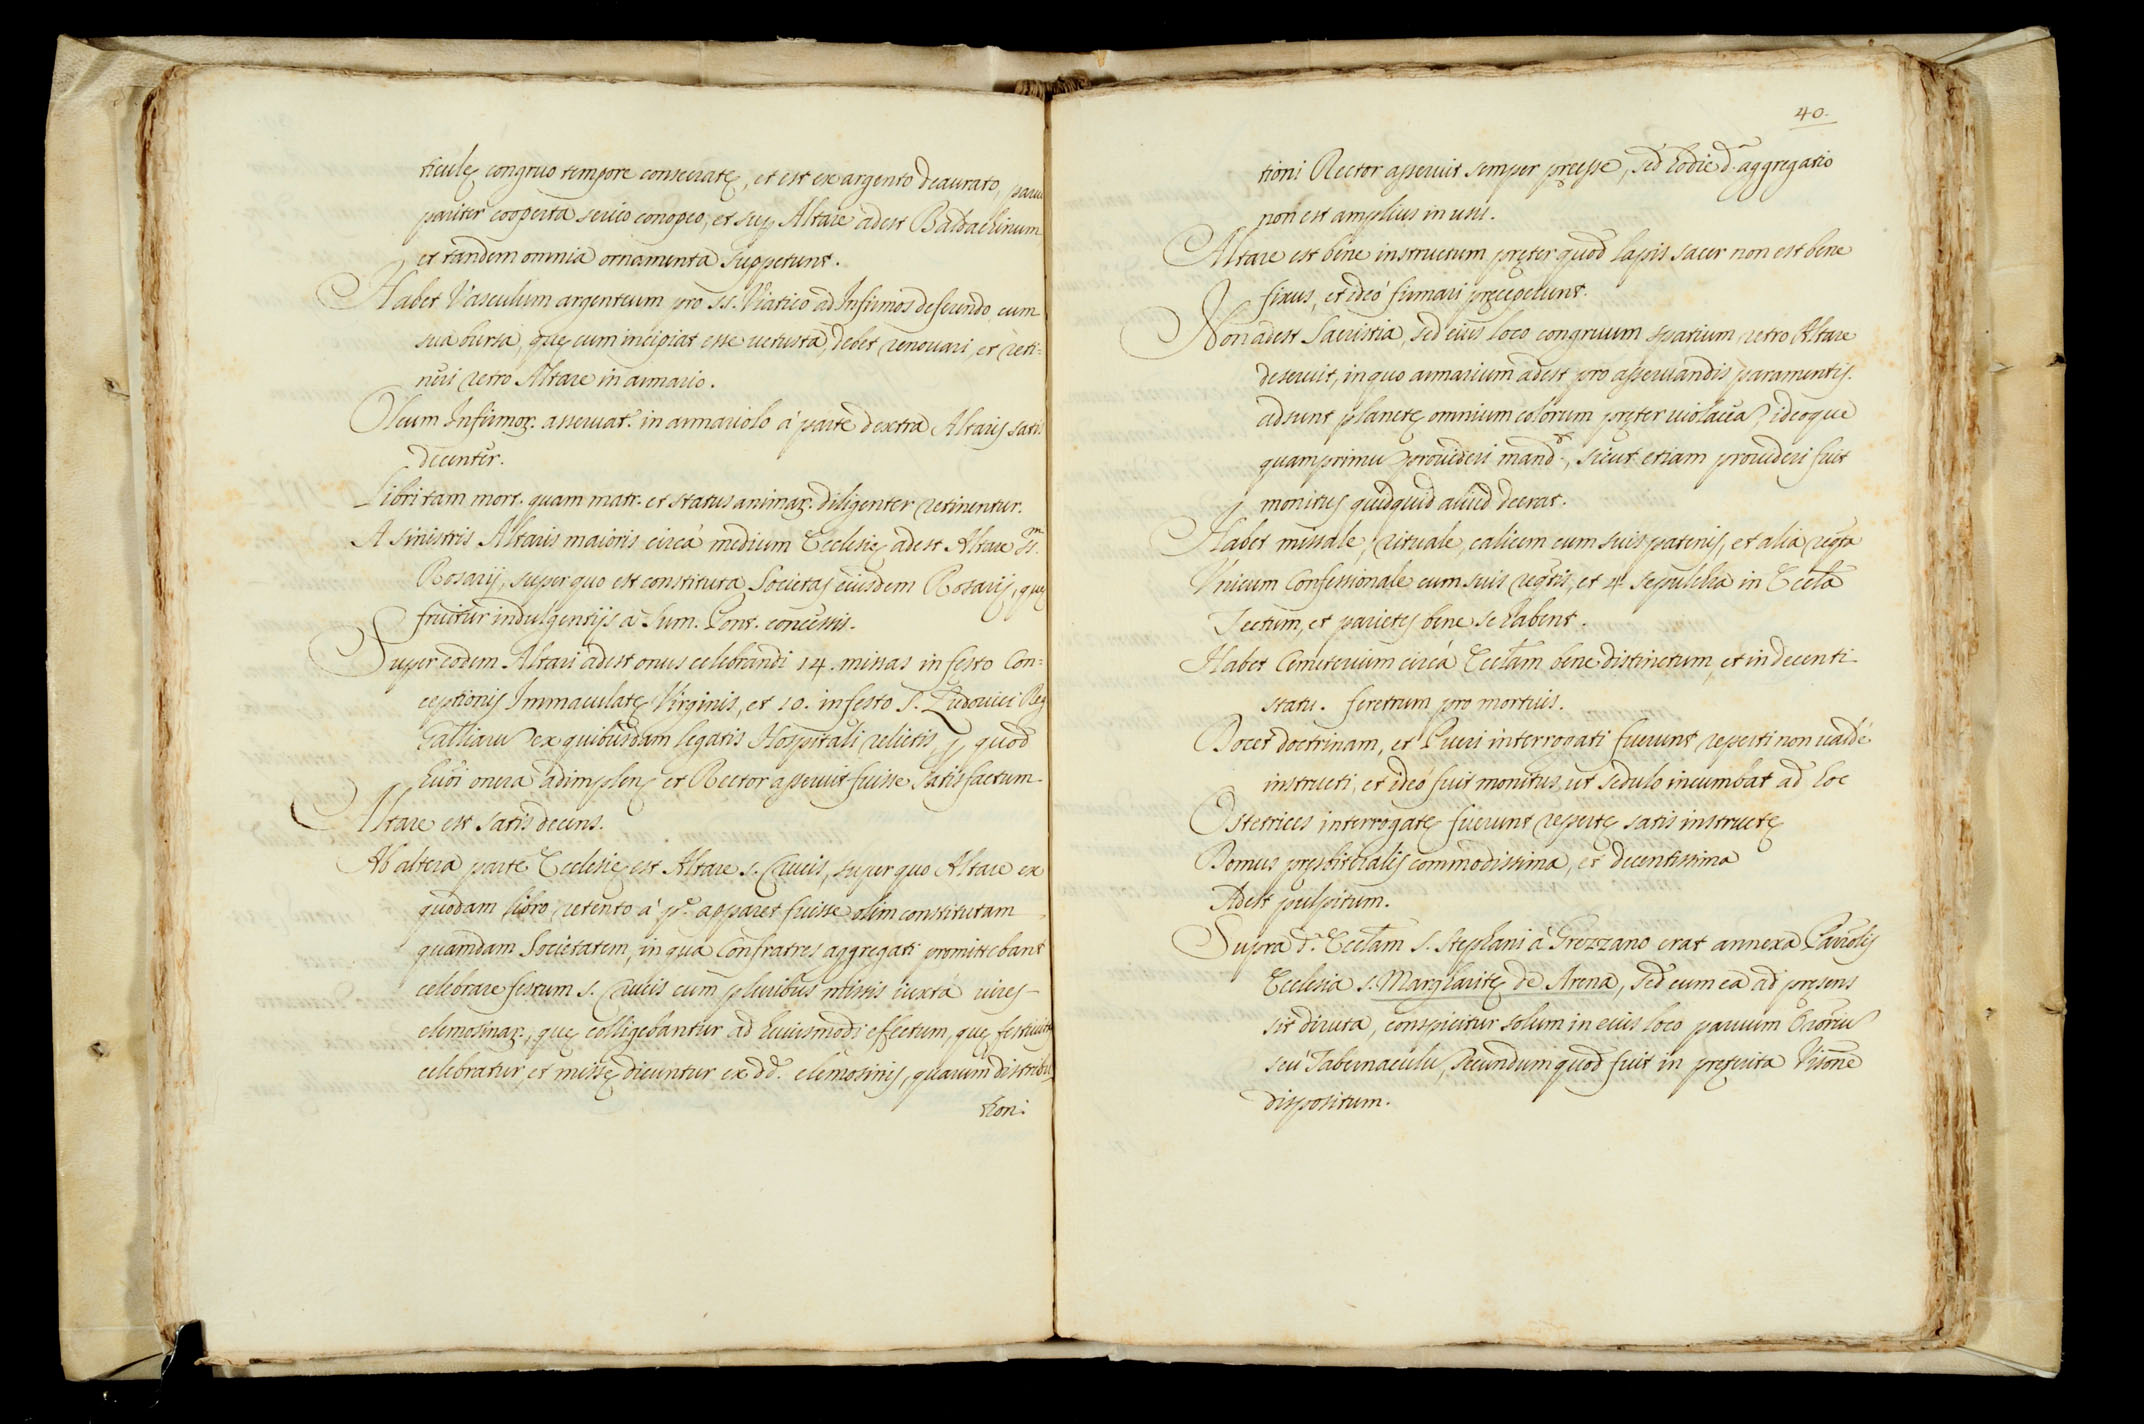 ticulę congruo tempore consecratę, et est ex argento deaurato,
pariter cooperta serico conopeo, et sup. Altare adest Baldachinum
et tandem omnia ornamenta suppetunt.
Habet Vasculum argenteum pro SS. Viatico ad Infirmos deferendo cum
sua bursa, quę cum incipiat esse uetusta, debet renouari, et reti=
neri retro Altare in armario.
Oleum Infirmoꝝ. asseruat.r in armariolo à parte dextra Altaris satis
decenter.
Libri tam mort. quam matr. et status animaꝝ. diligenter retinentur.
A sinistris Altaris maioris circà medium Ecclesię adest Altare SS.m
Rosarij, super quo est constituta Societas eiusdem Rosarij, quę
fruitur indulgentijs à Sum. Pont. concessis.
Super eodem Altari adest onus celebrandi 14. missas in festo Con=
ceptionis Immaculatę Virginis, et 10. in festo S. Ludouici Reg
Galliaru ex quibusdam legatis Hospitali relictis quod
onera et Rector asseruit fuisse satisfactum.
Altare est satis decens.
Ab altera parte Ecclesię est Altare S. Crucis, super quo Altare ex
quodam libro retento à p.º apparet fuisse olim constitutam
quamdam Societatem, in qua Confratres aggregati promittebant
celebrare festum S. Crucis cum pluribus missis iuxta uires
elemosinaꝝ., quę colligebantur ad huiusmodi effectum, quę
celebratur, et missę dicuntur ex dd. elemosinis, quarum distribu
tioni
40.
tioni Rector asseruit semper pręesse, sed hodie d.a aggregatio
non est amplius in usu.
Altare est bene instructum pręter quod lapis sacer non est bene
fixus, et ideò firmari pręceperunt.
Non adest Sacristia, sed eius loco congruum spatium retro Altare
deseruit, in quo armarium adest pro asseruandis paramentis.
adsunt planetę omnium colorum pręter uiolacea, ideoque
quamprimu prouideri mand.t, sicut etiam prouideri fuit
monitus quidquid aliud deerat.
Habet missale, rituale, calicem cum suis patenis, et alia reqta
Vnicum Confessionale cum suis reqtis, et 4 sepulchra in Eccla
Tectum, et parietes bene se habent.
Habet Cemeterium circà Ecclam bene distinctum, et in decenti
statu. feretrum pro mortuis.
Docet doctrinam, et Pueri interrogati fuerunt reperti non ualdè
instructi, et ideò fuit monitus, ut sedulo incumbat ad hoc
Ostetrices interrogatę fuerunt repertę satis instructę
Domus presbiteralis commodissima, et decentissima
Adest pulpitum.
Supra d.a Ecclam S. Stephani à Grezzano erat annexa
Ecclesia S. Margharitę de Arena, sed cum ea ad pręsens
sit diruta, conspicitur solum in eius loco paruum Oratoriu
seù Tabernaculu, secundum quod fuit in pręterita Visone
dispositum.